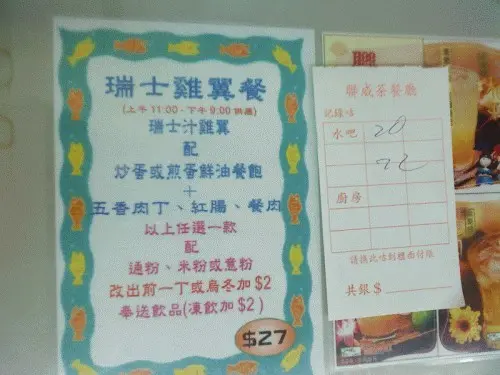 瑞士雞翼餐
(上午11:00-下午9:00供應)
瑞士汁雞翼
配
炒蛋或煎蛋鮮油餐飽
+
五香肉丁、紅腸、餐肉
以上任選一款
配
通粉、米粉或意粉
改出前一丁或烏冬加$2
奉送飲品(凍飲加$2)
$27
聯成茶餐廳
記錄咭
水吧 20
22
廚房
請携此咭到櫃面付銀
共銀$